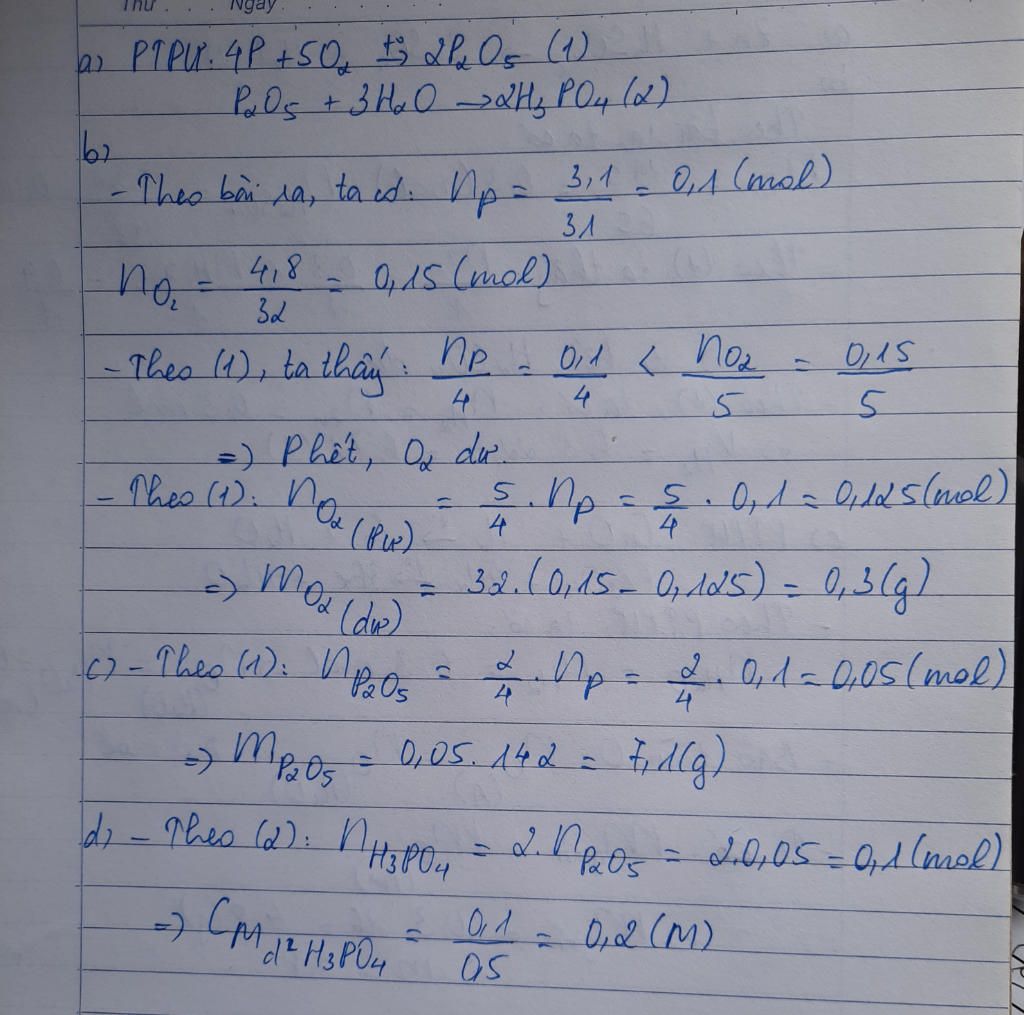 Thứ . . . Ngày . . . .
a) PTPƯ: 4P + 5O₂ t°→ 2P₂O₅ (1)
P₂O₅ + 3H₂O → 2H₃PO₄ (2)
b)
- Theo bài ra, ta có: nP = 3,1/31 = 0,1 (mol)
nO₂ = 4,8/32 = 0,15 (mol)
- Theo (1), ta thấy: nP/4 = 0,1/4 < nO₂/5 = 0,15/5
=> P hết, O₂ dư.
- Theo (1): nO₂ (PƯ) = 5/4 . nP = 5/4 . 0,1 = 0,125 (mol)
=> mO₂ (dư) = 32.(0,15 - 0,125) = 0,3 (g)
c) - Theo (1): nP₂O₅ = 2/4 . nP = 2/4 . 0,1 = 0,05 (mol)
=> mP₂O₅ = 0,05. 142 = 7,1 (g)
d) - Theo (2): nH₃PO₄ = 2. nP₂O₅ = 2.0,05 = 0,1 (mol)
=> CM d² H₃PO₄ = 0,1/0,5 = 0,2 (M)